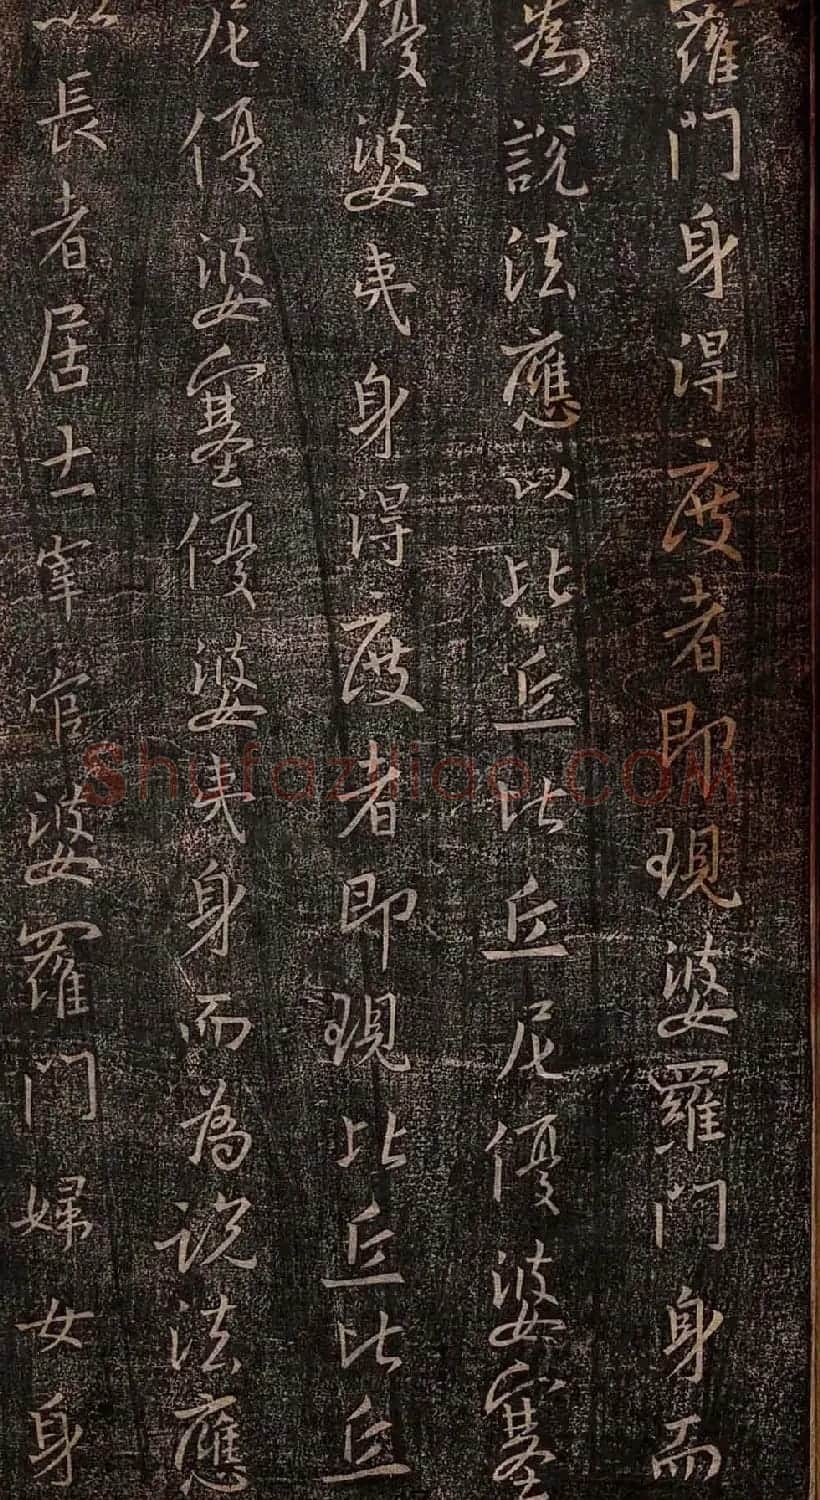 羅門身得度者即現婆羅門身而
為說法應以比丘比丘尼優婆塞
優婆夷身得度者即現比丘比丘
尼優婆塞優婆夷身而為說法應
以長者居士宰官婆羅門婦女身
Shufaziliao.COM